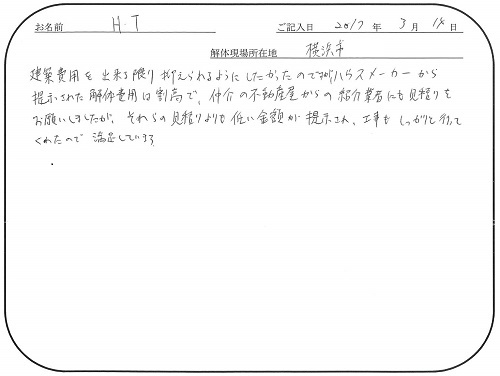 お名前 H.T ご記入日 2017 年 3 月 14 日
解体現場所在地 横浜市
建築費用を出来る限り抑えられるようにしたかったのですがハウスメーカーから
提示された解体費用は割高で、仲介の不動産屋からの紹介業者にも見積りを
お願いしましたが、それらの見積りよりも低い金額が提示され、工事もしっかりと行って
くれたので満足しています